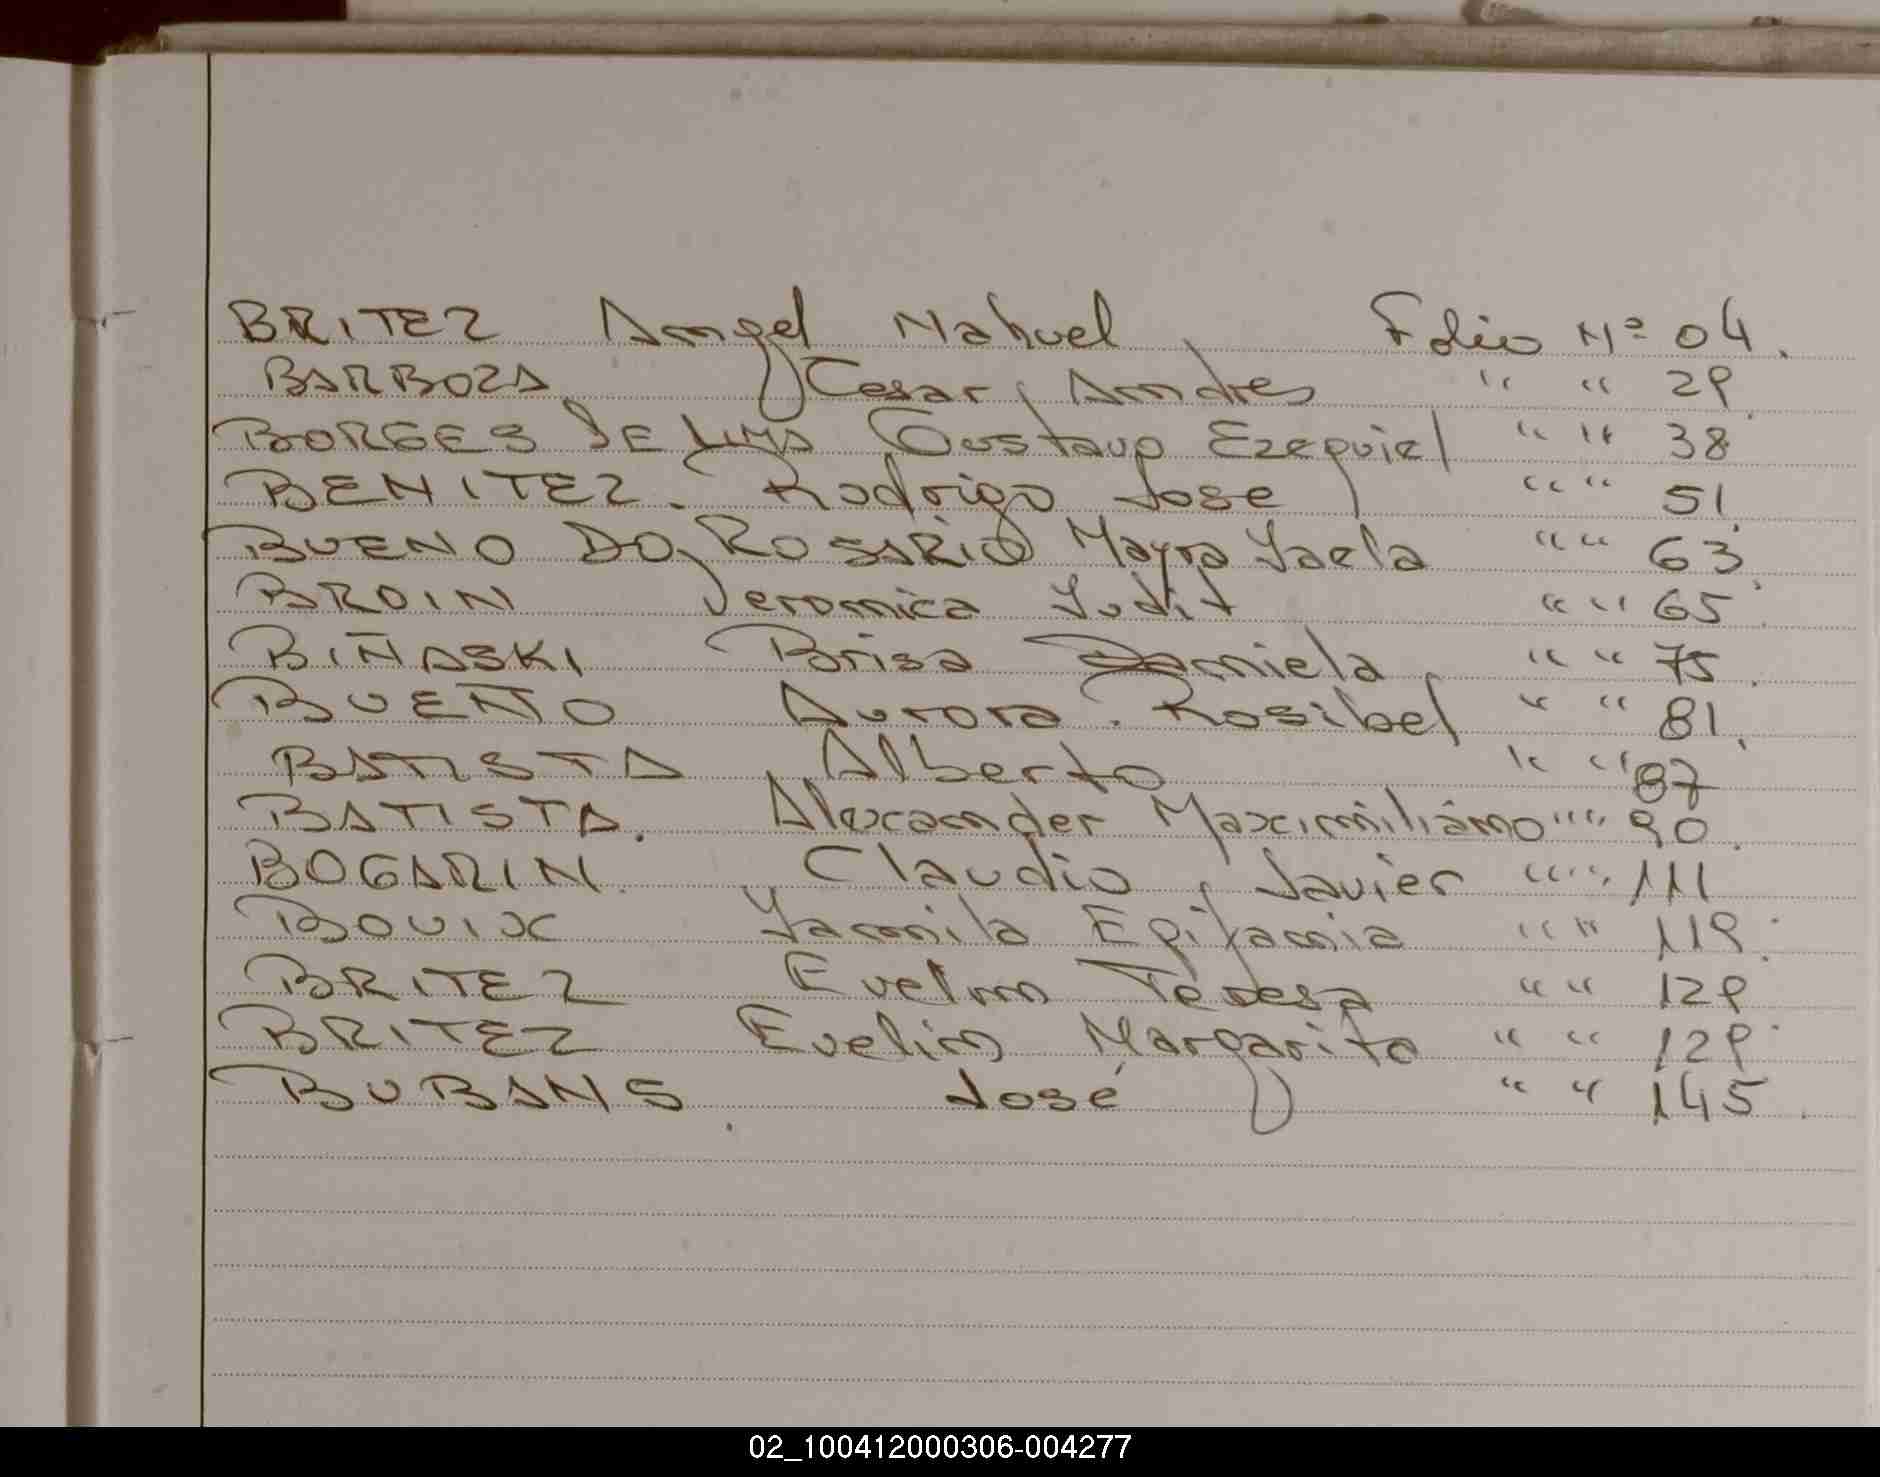 BRITEZ Angel Nahuel Folio Nº 04.
BARBOZA Cesar Andres " " 29.
BORGES DE LIMA Gustavo Ezequiel " " 38
BENITEZ. Rodrigo Jose " " 51.
BUENO DO ROSARIO Mayra Yaela " " 63.
BROIN Veronica Yudit " " 65.
BIÑASKI Brisa Daniela " " 75.
BUENO Aurora Rosibel " " 81.
BATISTA Alberto " " 87
BATISTA. Alexander Maximiliano " " 90.
BOGARIN. Claudio Javier " " 111
BOUIX Yamila Epifania " " 119.
BRITEZ Evelin Teresa " " 129
BRITEZ Evelin Margarita " " 129.
BUBANS. José " " 145.
02_100412000306-004277